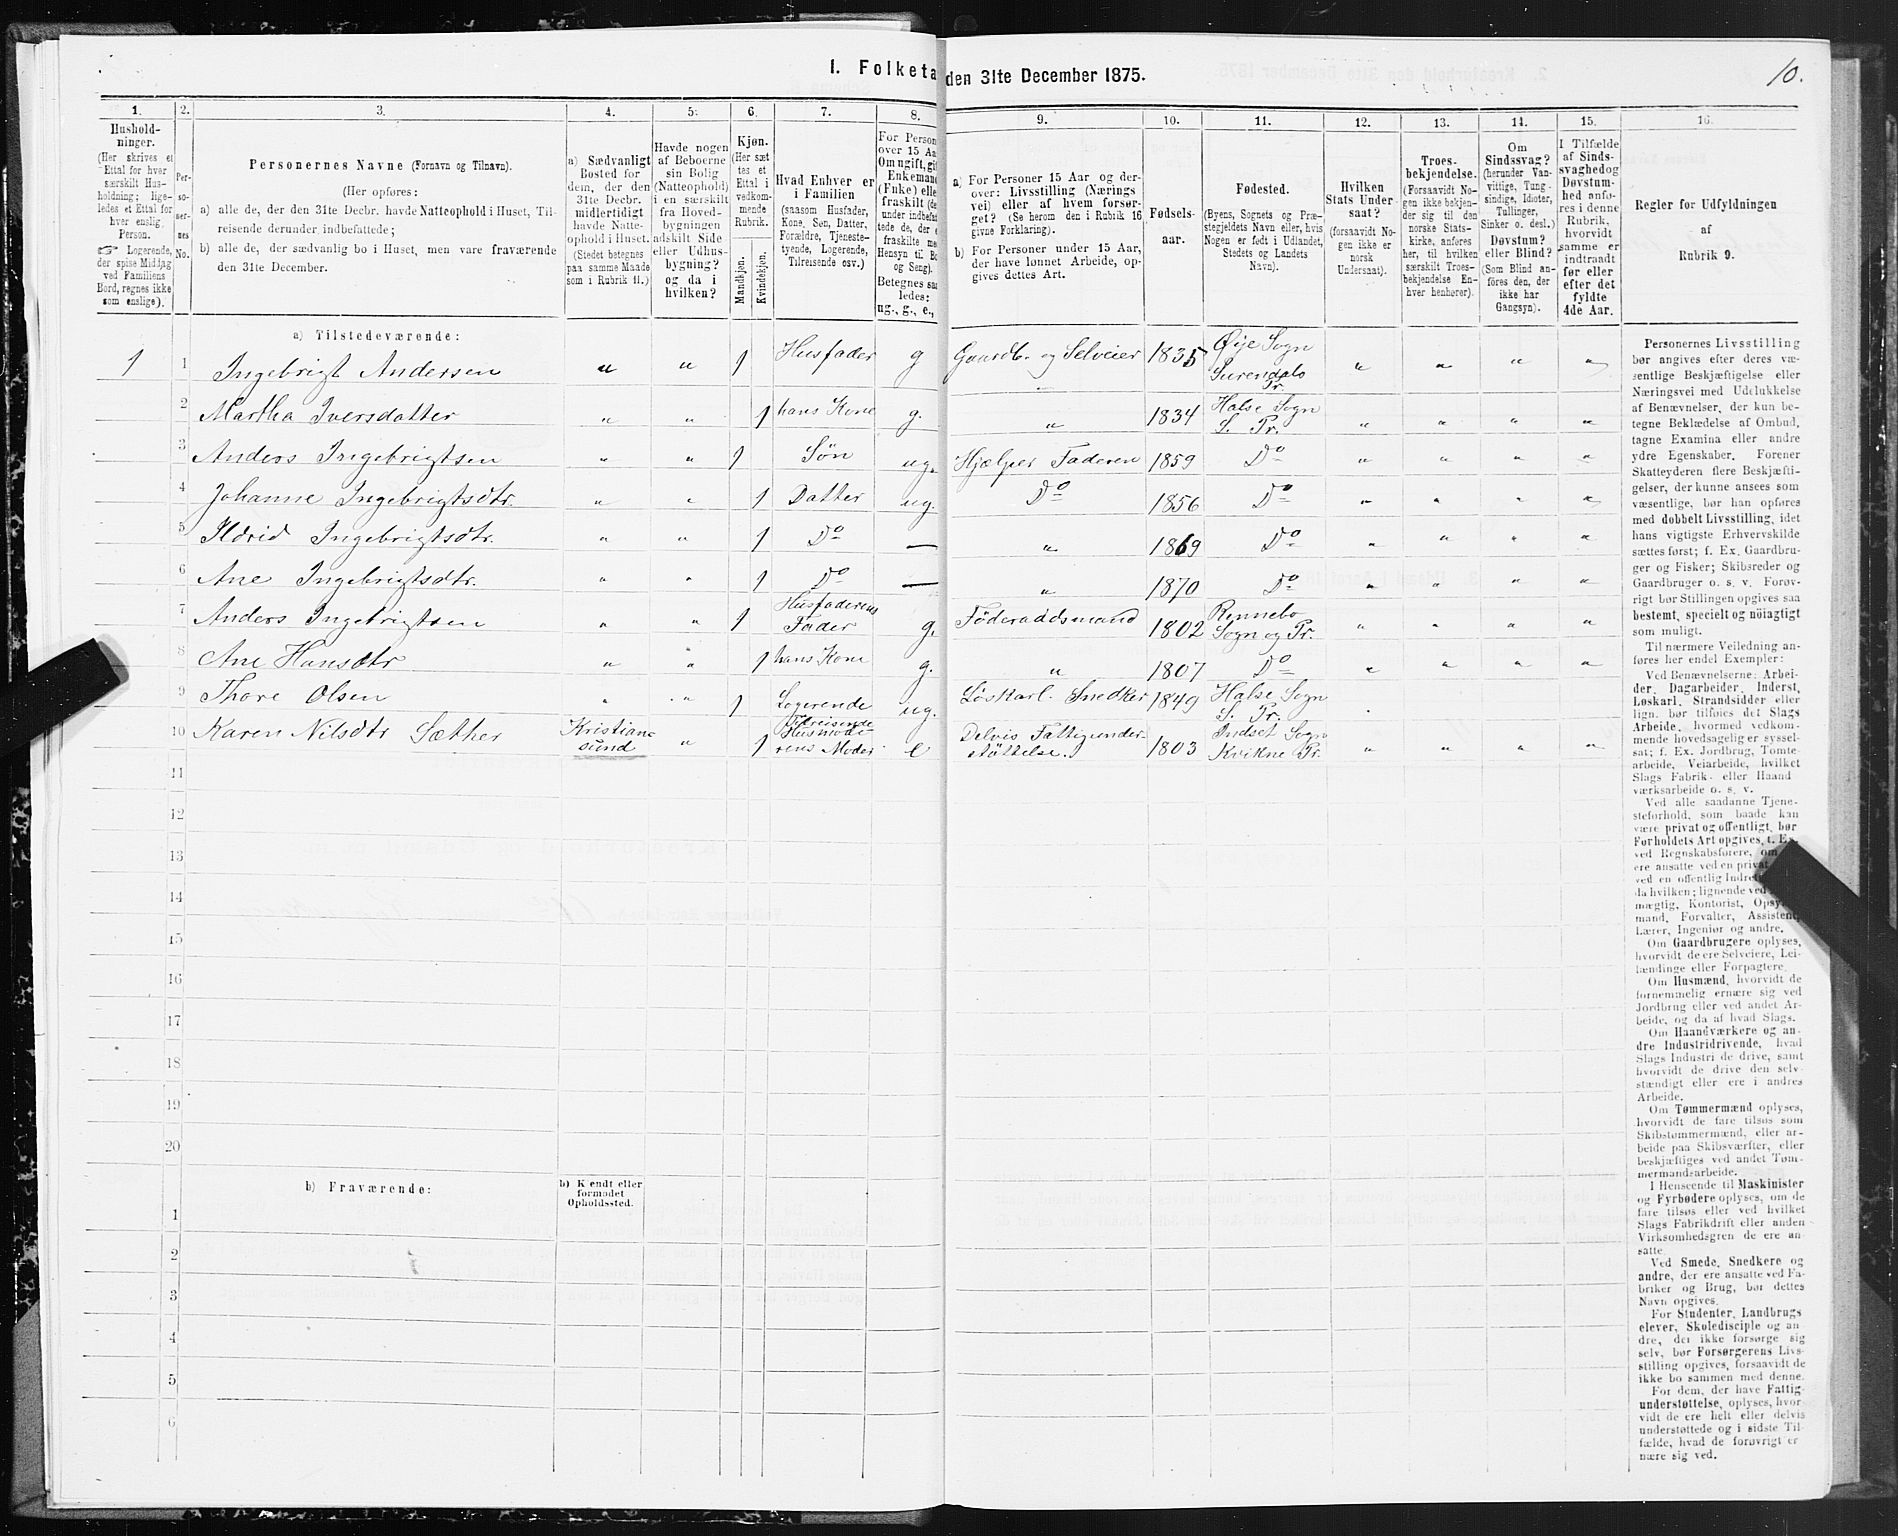 1. Folketa den 31te December 1875.
10.
1. 2. 3. 4. 5. 6. 7. 8. 9. 10. 11. 12. 13. 14. 15. 16.
Hushold-
ninger.
(Her skrives et
Ettal for hver
særskilt Hus-
holdning; lige-
ledes et Ettal for
hver enslig
Person.
☞ Logerende,
der spise Middag
ved Familiens
Bord, regnes ikke
som enslige).
Per-
so-
ner-
nes
No.
Personernes Navne (Fornavn og Tilnavn).
(Her opføres:
a) alle de, der den 31te Decbr. havde Natteophold i Huset, Til-
reisende derunder indbefattede;
b) alle de, der sædvanlig bo i Huset, men vare fraværende
den 31te December.
a) Sædvanligt
Bosted for
dem, der den
31te Decbr.
midlertidigt
havde Natte-
ophold i Huset.
(Stedet betegnes
paa samme Maade
som i Rubrik 11.)
Havde nogen
af Beboerne
sin Bolig
(Natteophold)
i en særskilt
fra Hoved-
bygningen
adskilt Side-
eller Udhus-
bygning?
og da i
hvilken?
Kjøn.
(Her sæt-
tes et
Ettal i
vedkom-
mende
Rubrik.
Mandkjøn.
Kvindekjøn.
Hvad Enhver er
i Familien
(saasom Husfader,
Kone, Søn, Datter,
Forældre, Tjeneste-
tyende, Logerende,
Tilreisende osv.)
For Person
over 15 Aa
Om ugift, gif
Enkemand
(Fuke) elle
fraskilt (de
under indbefat
tede de, der e
fraskilte me
Hensyn til Bo
og Seng).
Betegnes saa
ledes:
ug., g., e.,
a) For Personer 15 Aar og der-
over: Livsstilling (Nærings
vei) eller af hvem forsør-
get? (Se herom den i Rubrik 16
givne Forklaring).
b) For Personer under 15 Aar,
der have lønnet Arbeide, op-
gives dettes Art.
Fødsels-
aar.
Fødested.
(Byens, Sognets og Præ-
stegjeldets Navn eller, hvis
Nogen er født i Udlandet,
Stedets og Landets
Navn).
Hvilken
Stats Under
saat?
(forsaavidt No-
gen ikke er
norsk
Undersaat).
Troes-
bekjendelse.
(Forsaavidt No-
gen ikke bekjen-
der sig til den
norske Stats-
kirke, anføres
her, til hvilken
særskilt Troes-
bekjendelse En-
hver henhører).
Om
Sindssvag?
(herunder Van-
vittige, Tung-
sindige, Idioter,
Tullinger,
Sinker o. desl.)
Døvstum?
eller Blind?
(Som Blind an-
føres den, der
ikke har
Gangsyn).
I Tilfælde
af Sinds-
svaghed og
Døvstum-
hed anfø-
res i denne
Rubrik,
hvorvidt
samme er
indtraadt
før eller
efter det
fyldte
4de Aar.
Regler for Udfyldningen
af
Rubrik 9.
a) Tilstedeværende:
1 1 Ingebrigt Andersen " " 1 Husfader g Gaardb. og Selveier 1835 Øije Sogn Surendals Pr. " " " "
2 Martha Iversdatter " " 1 hans Kone g. " 1834 Halse Sogn S. Pr. " " " "
3 Anders Ingebrigtsen " " 1 Søn ug. Hjælper Faderen 1859 Do " " " "
4 Johanne Ingebrigtsdtr. " " 1 Datter ug. Do 1856 Do " " " "
5 Ildrid Ingebrigtsdtr. " " 1 Do — " 1869 Do " " " "
6 Ane Ingebrigtsdtr. " " 1 Do — " 1870 Do " " " "
7 Anders Ingebrigtsen " " 1 Husfaderens Fader g. Föderaadsmand 1802 Rennebo Sogn og Pr. " " " "
8 Ane Hansdtr " " 1 hans Kone g. " 1807 Do " " " "
9 Thore Olsen " " 1 Logerende ug. Löskarl. Snedker 1849 Halse Sogn S. Pr.
10 Karen Nilsdtr Sæther Kristian- sund " 1 Tilreisende Husmode- rens Moder e Delvis Fattigunder- støttelse. 1803 Indset Sogn Kvikne Pr. " " " "
11
12
13
14
15
16
17
18
19
20
b) Fraværende:
b) Kendt eller
formodet
Opholdssted.
1
2
3
4
5
6
Personernes Livsstilling
bør angives efter deres væ-
sentlige Beskjæftigelse eller
Næringsvei med Udelukkelse
af Benævnelser, der kun be-
tegne Beklædelse af Ombud,
tagne Examina eller andre
ydre Egenskaber. Forener
Skatteyderen flere Beskjæfti-
gelser, der kunne ansees som
væsentlige, bør han opføres
med dobbelt Livsstilling, idet
hans vigtigste Erhvervskilde
sættes først; f. Ex. Gaardbru-
ger og Fisker; Skibsreder og
Gaardbruger o. s. v. Forøv-
rigt bør Stillingen opgives saa
bestemt, specielt og nöiagtigt
som muligt.
Til nærmere Veiledning an-
føres her endel Exempler:
Ved Benævnelserne: Arbei-
der, Dagarbeider, Inderst,
Løskarl, Strandsidder eller
lign. bør tilføies det Slags
Arbeide, hvormed vedkom-
mende hovedsagelig er syssel-
sat; f. Ex. Jordbrug, Tomte-
arbeide, Veiarbeide, hvilket
Slags Fabrik- eller Haand
værksarbeide o. s. v.
Ved alle saadanne Tjene-
steforhold, som baade kan
være privat og offentligt, bør
Forholdets Art opgives, t. Ex.
ved Regnskabsførere, om
ere ansatte ved en privat
ved en offentlig Indret
da hvilken; lignende ved
mægtig, Kontorist, Opsyns
mand, Forvalter, Assistent,
Lærer, Ingeniør og andre.
Om Gaardbrugere oplyses,
hvorvidt de ere Selveiere, Lei-
lændinge eller Forpagtere.
Om Husmænd, hvorvidt de
fornemmelig ernære sig ved
Jordbrug eller ved andet Ar-
beide, og da af hvad Slags.
Om Haandværkere og an-
dre Industridrivende, hvad
Slags Industri de drive, samt
hvorvidt de drive den selv-
stændigt eller ere i andres
Arbeide.
Om Tømmermænd oplyses,
hvorvidt de fare tilsøs som
Skibstømmermænd, eller ar-
beide paa Skibsværfter, eller
beskjæftiges ved andet Tøm-
mermandsarbeide.
I Henseende til Maskinister
og Fyrbødere oplyses, om de
fare tilsøs eller ved hvilket
Slags Fabrikdrift eller anden
Virksomhedsgren de ere an-
satte.
Ved Smede, Snedkere og
andre, der ere ansatte ved Fa-
briker og Brug, bør dettes
Navn opgives.
For Studenter, Landbrugs
elever, Skoledisciple og an
dre, der ikke forsørge sig
selv, bør Forsørgerens Livs-
stilling opgives, forsaavidt de
ikke bo sammen med denne.
For dem, der have Fattig-
understøttelse, oplyses, hvor
vidt de ere helt eller delvis
understøttede og i sidste Til-
fælde, hvad de forøvrigt er
nære sig ved.